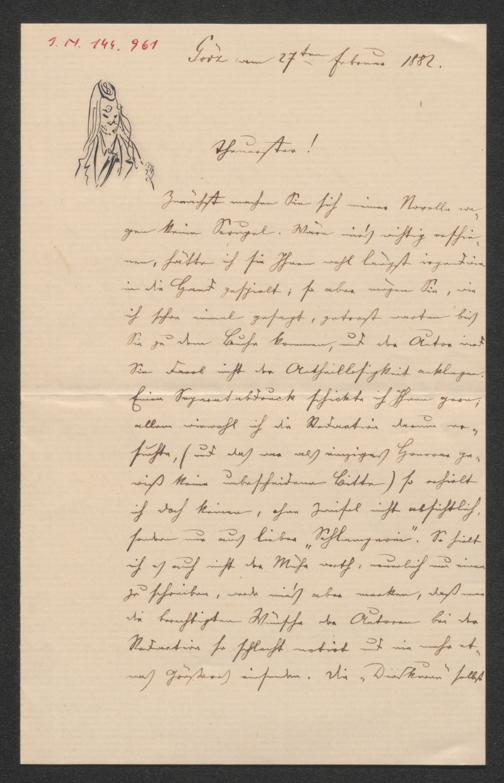 I. N. 144. 961
Görz am 27ten Februar 1882.
Theuerster!
Zunächst machen Sie sich meiner Novelle we-
gen keine Scrupel. Wäre mir's wichtig erschie-
nen, hätte ich sie Ihnen wohl längst irgendwie
in die Hand gespielt; so aber mögen Sie, wie
ich schon einmal gesagt, getrost warten bis
Sie zu dem Buche kommen, und der Autor wird
Sie darob nicht der Antheillosigkeit anklagen.
Einen Separatabdruck schickte ich Ihnen gern,
allein wiewohl ich die Redaction darum er-
suchte, (und das war als einziges Honorar ge-
wiß keine unbescheidene Bitte) so erhielt
ich doch keinen, ohne Zweifel nicht absichtlich,
sondern nur aus lieber "Schlamperei". So hielt
ich es auch nicht der Mühe werth, neuerlich um einen
zu schreiben, werde mir's aber merken, daß man
die berechtigten Wünsche der Autoren bei der
Redaction so schlecht notirt und nie mehr et-
was Größeres einsenden. Die "Dioskuren" selbst